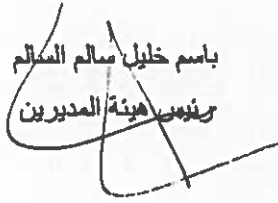 باسم خليل سالم السالم
رئيس هيئة المديرين